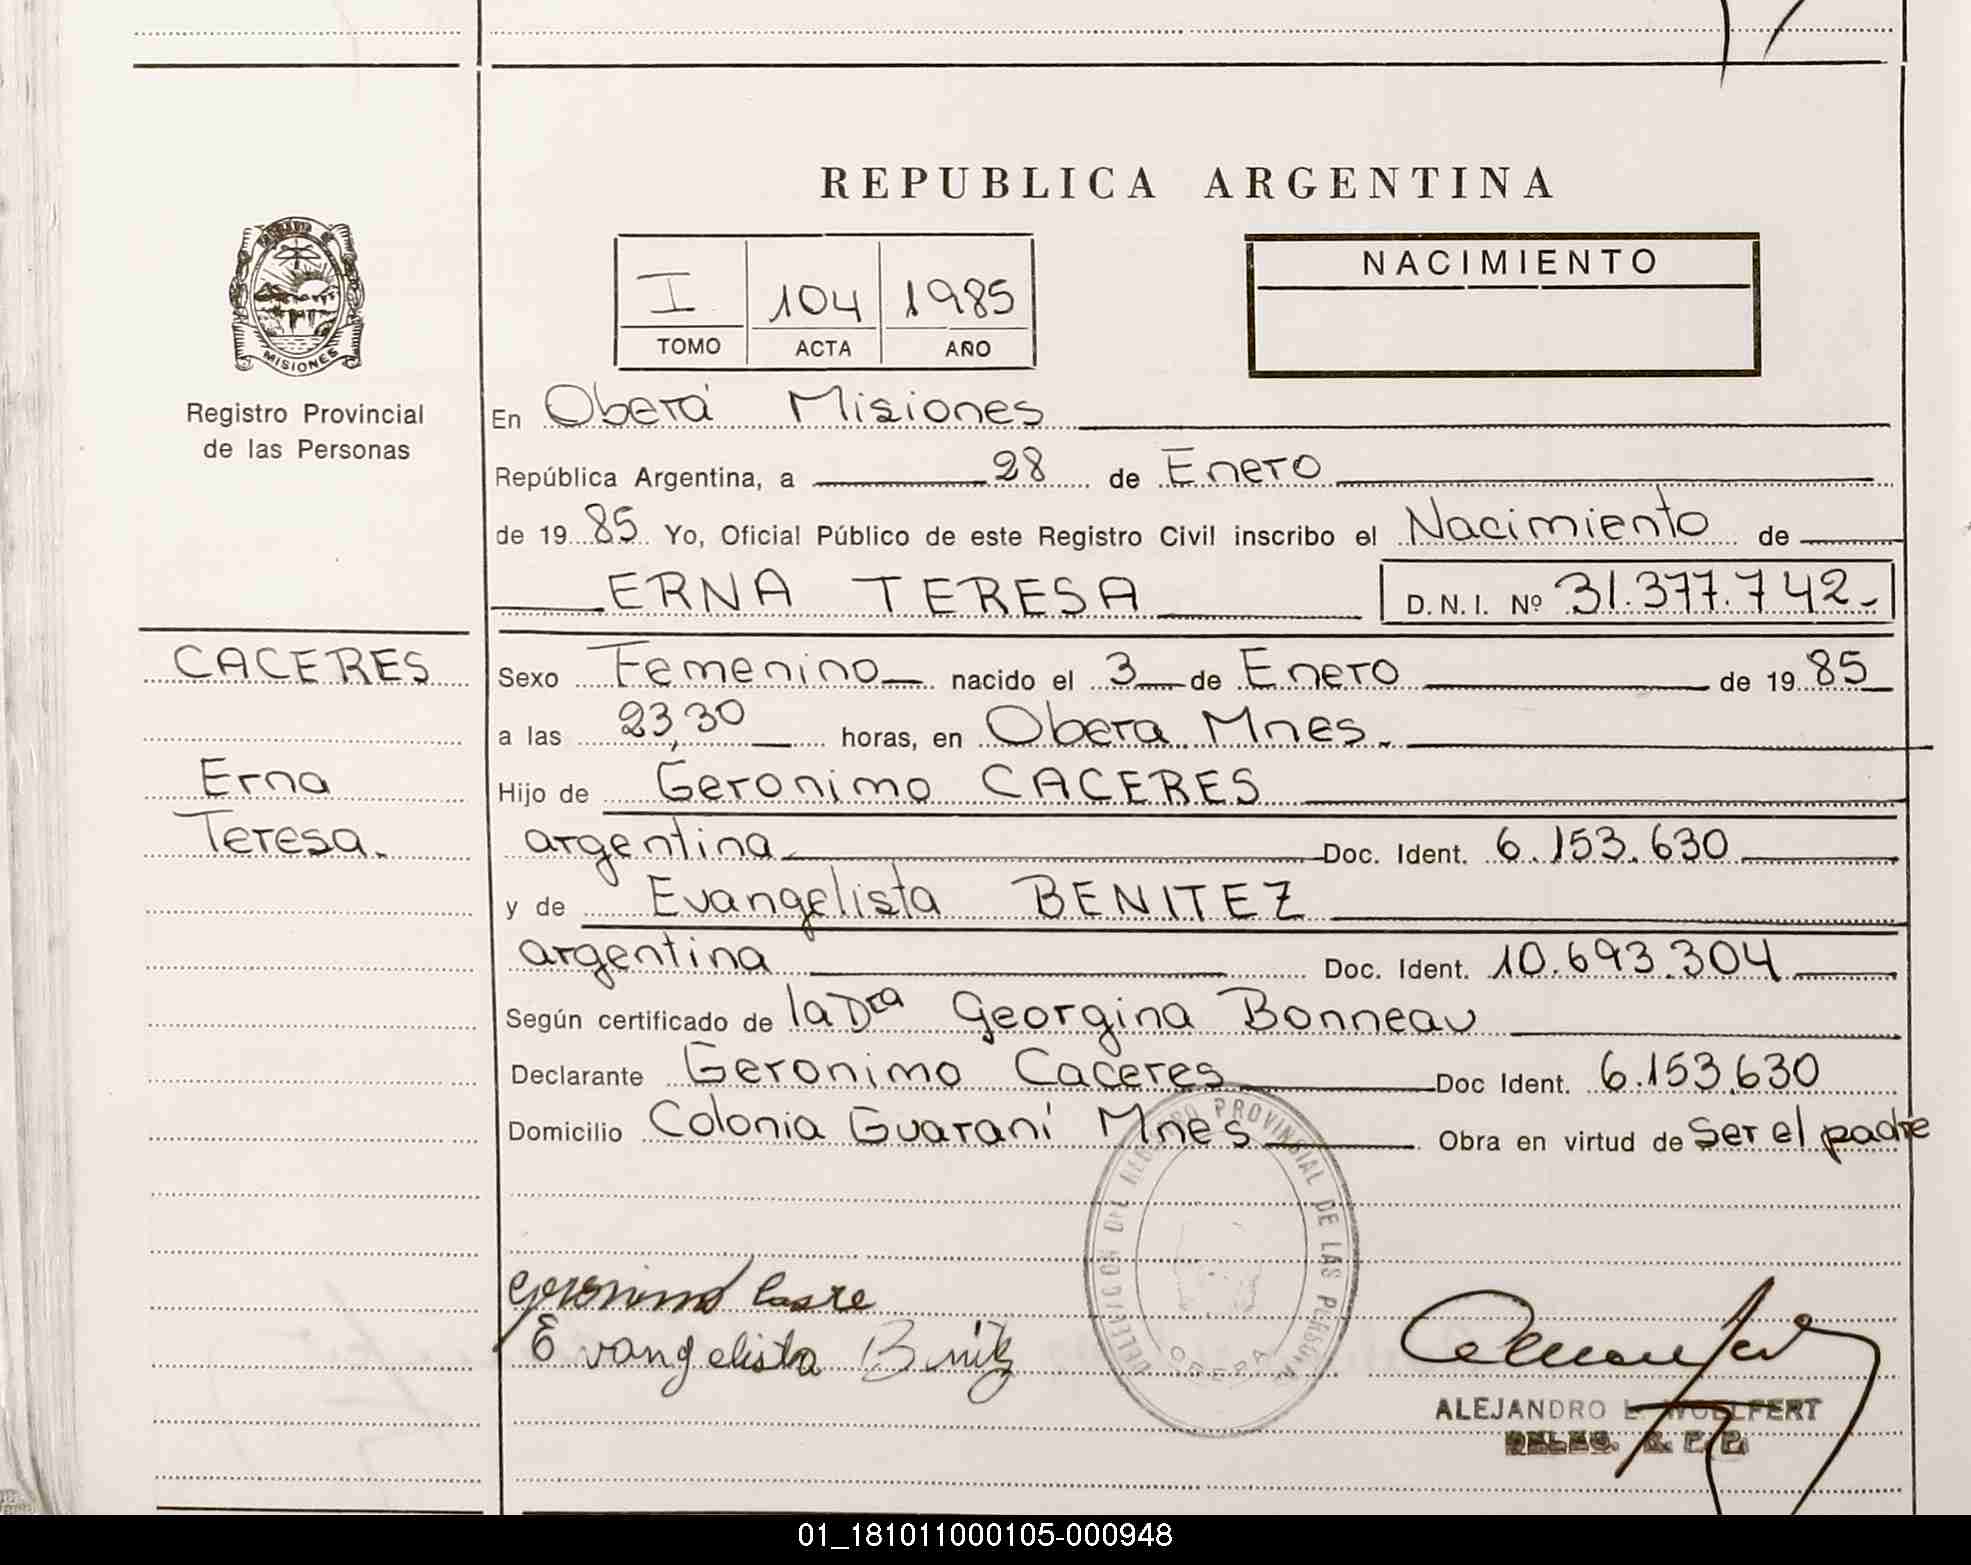 REPUBLICA ARGENTINA
MISIONES
Registro Provincial
de las Personas
I 104 1985
TOMO ACTA AÑO
NACIMIENTO
En Oberá Misiones
República Argentina, a 28 de Enero
de 19 85 Yo, Oficial Público de este Registro Civil inscribo el Nacimiento de
ERNA TERESA D.N.I. Nº 31.377.742
CACERES
Erna
Teresa.
Sexo Femenino nacido el 3 de Enero de 19 85
a las 23,30 horas, en Obera Mnes.
Hijo de Geronimo CACERES
argentina Doc. Ident. 6.153.630
y de Evangelista BENITEZ
argentina Doc. Ident. 10.693.304
Según certificado de la Dra Georgina Bonneau
Declarante Geronimo Caceres Doc Ident. 6.153.630
Domicilio Colonia Guaraní Mnes Obra en virtud de Ser el padre
DELEGACION DEL REGISTRO PROVINCIAL DE LAS PERSONAS
OBERA
Geronimo
Evangelista
ALEJANDRO L. WOLLFERT
DELEG. R. P. P.
01_181011000105-000948